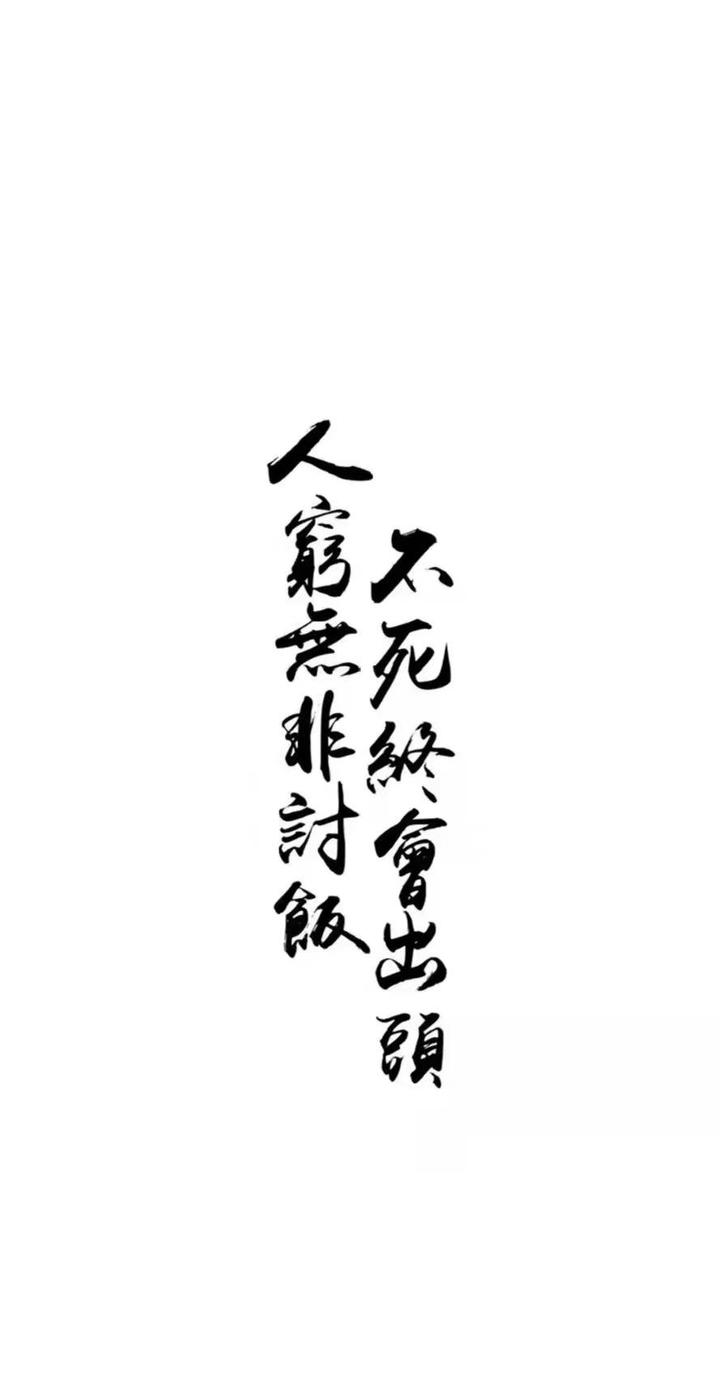 人窮無非討飯
不死終會出頭